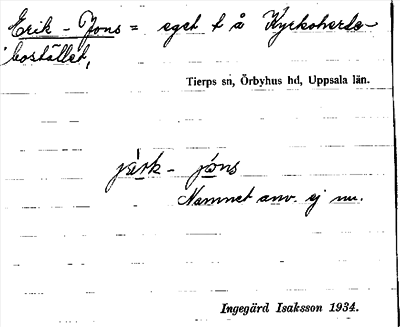 Erik-Jons = eget t å Kyrkoherde-
bostället,
Tierps sn, Örbyhus hd, Uppsala län.
jä̀rk- jóns
Namnet anv. ej nu.
Ingegärd Isaksson 1934.